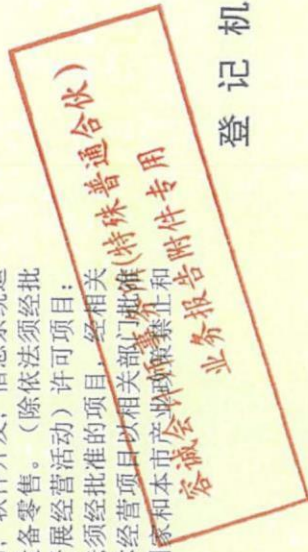 软件开发；信息系统运
备零售。（除依法须经批
展经营活动）许可项目：
须经批准的项目，经相关
经营项目以相关部门批准
国家和本市产业政策禁止和
容诚会计师事务所(特殊普通合伙)
业务报告附件专用
登记机